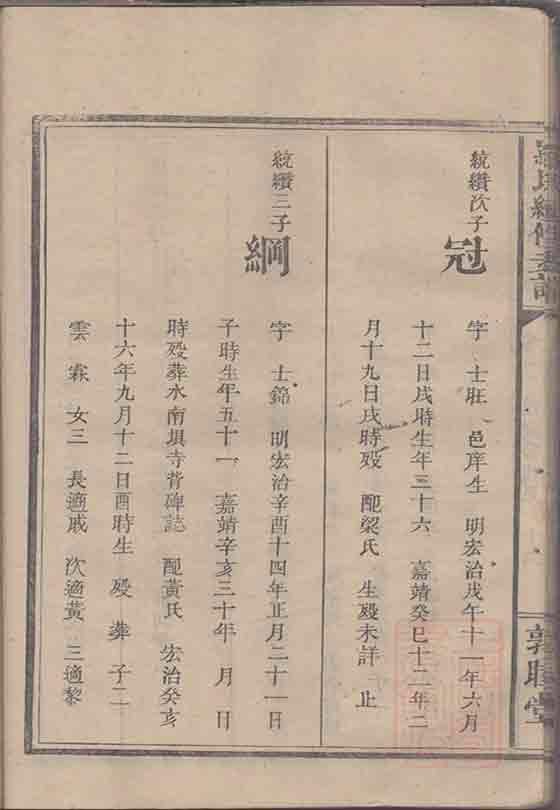 敦睦堂
統纘次子
冠
字 士旺 邑庠生 明宏治戊午十一年六月
十二日戌時生年三十六 嘉靖癸巳十二年二
月十九日戌時歿 配梁氏 生歿未詳 止
統纘三子
綱
字 士錦 明宏治辛酉十四年正月二十一日
子時生年五十一 嘉靖辛亥三十年 月 日
時歿葬水南垻寺背碑誌 配黃氏 宏治癸亥
十六年九月十二日酉時生 歿 葬 子二
雲 霖 女三 長適戚 次適黃 三適黎